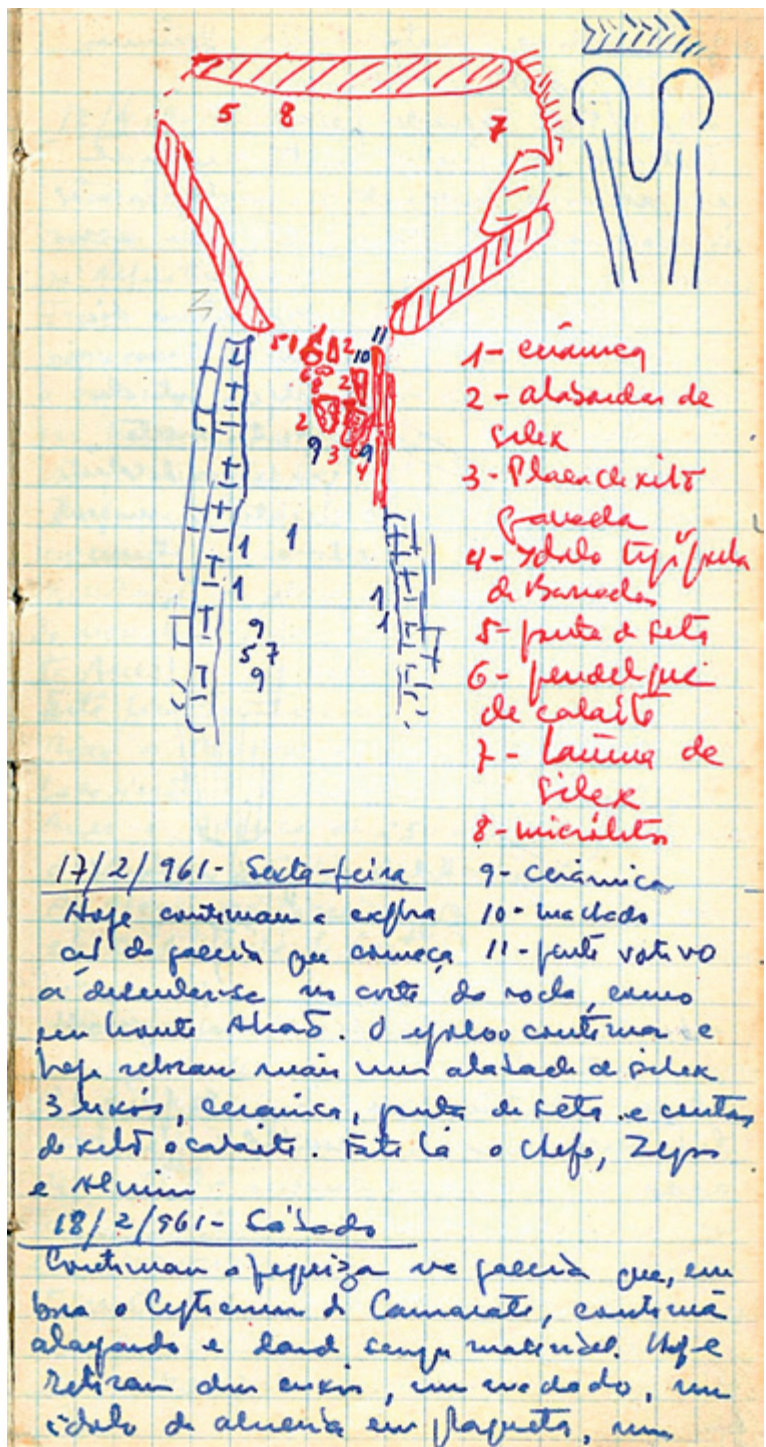 5 8
7
11
5 1 2 10
6
8 2
2
9 3 9
4
1 1
1 1
1
9
5 7
9
1 - cerâmica
2 - alabardas de
silex
3 - Placa de xisto
gravada
4 - Idolo tipo
de
5 - ponta de seta
6 -
de calaite
7 - Lamina de
silex
8 - micrólitos
9 - cerâmica
10 - machado
11 - pente votivo
17/2/961 - Sexta-feira
Hoje continuam a explora
da galeria que começa
a na corte da rocha, como
em Monte Abraão. O continua e
hoje retiram mais uma alabarda de silex
3 enxós, cerâmica, ponta de seta e contas
de xisto e calaite. o chefe, Zepo
e
18/2/961 - Sábado
Continuam a pesquiza na galeria que, em
bora o de Camarate, continua
alagando e dando sempre material. Hoje
retiram dois enxós, um machado, um
idolo de almeria em plaqueta, um